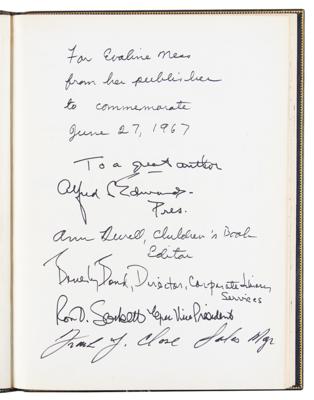 For Evaline Ness
from her publisher
to commemorate
June 27, 1967
To a great author
Alfred C Edwards-
Pres.
Ann Durell, Children's Book
Editor
Beverly Bond, Director, Corporate Library
Services
Ron D. Exec Vice President
Frank J. Close Sales Mgr